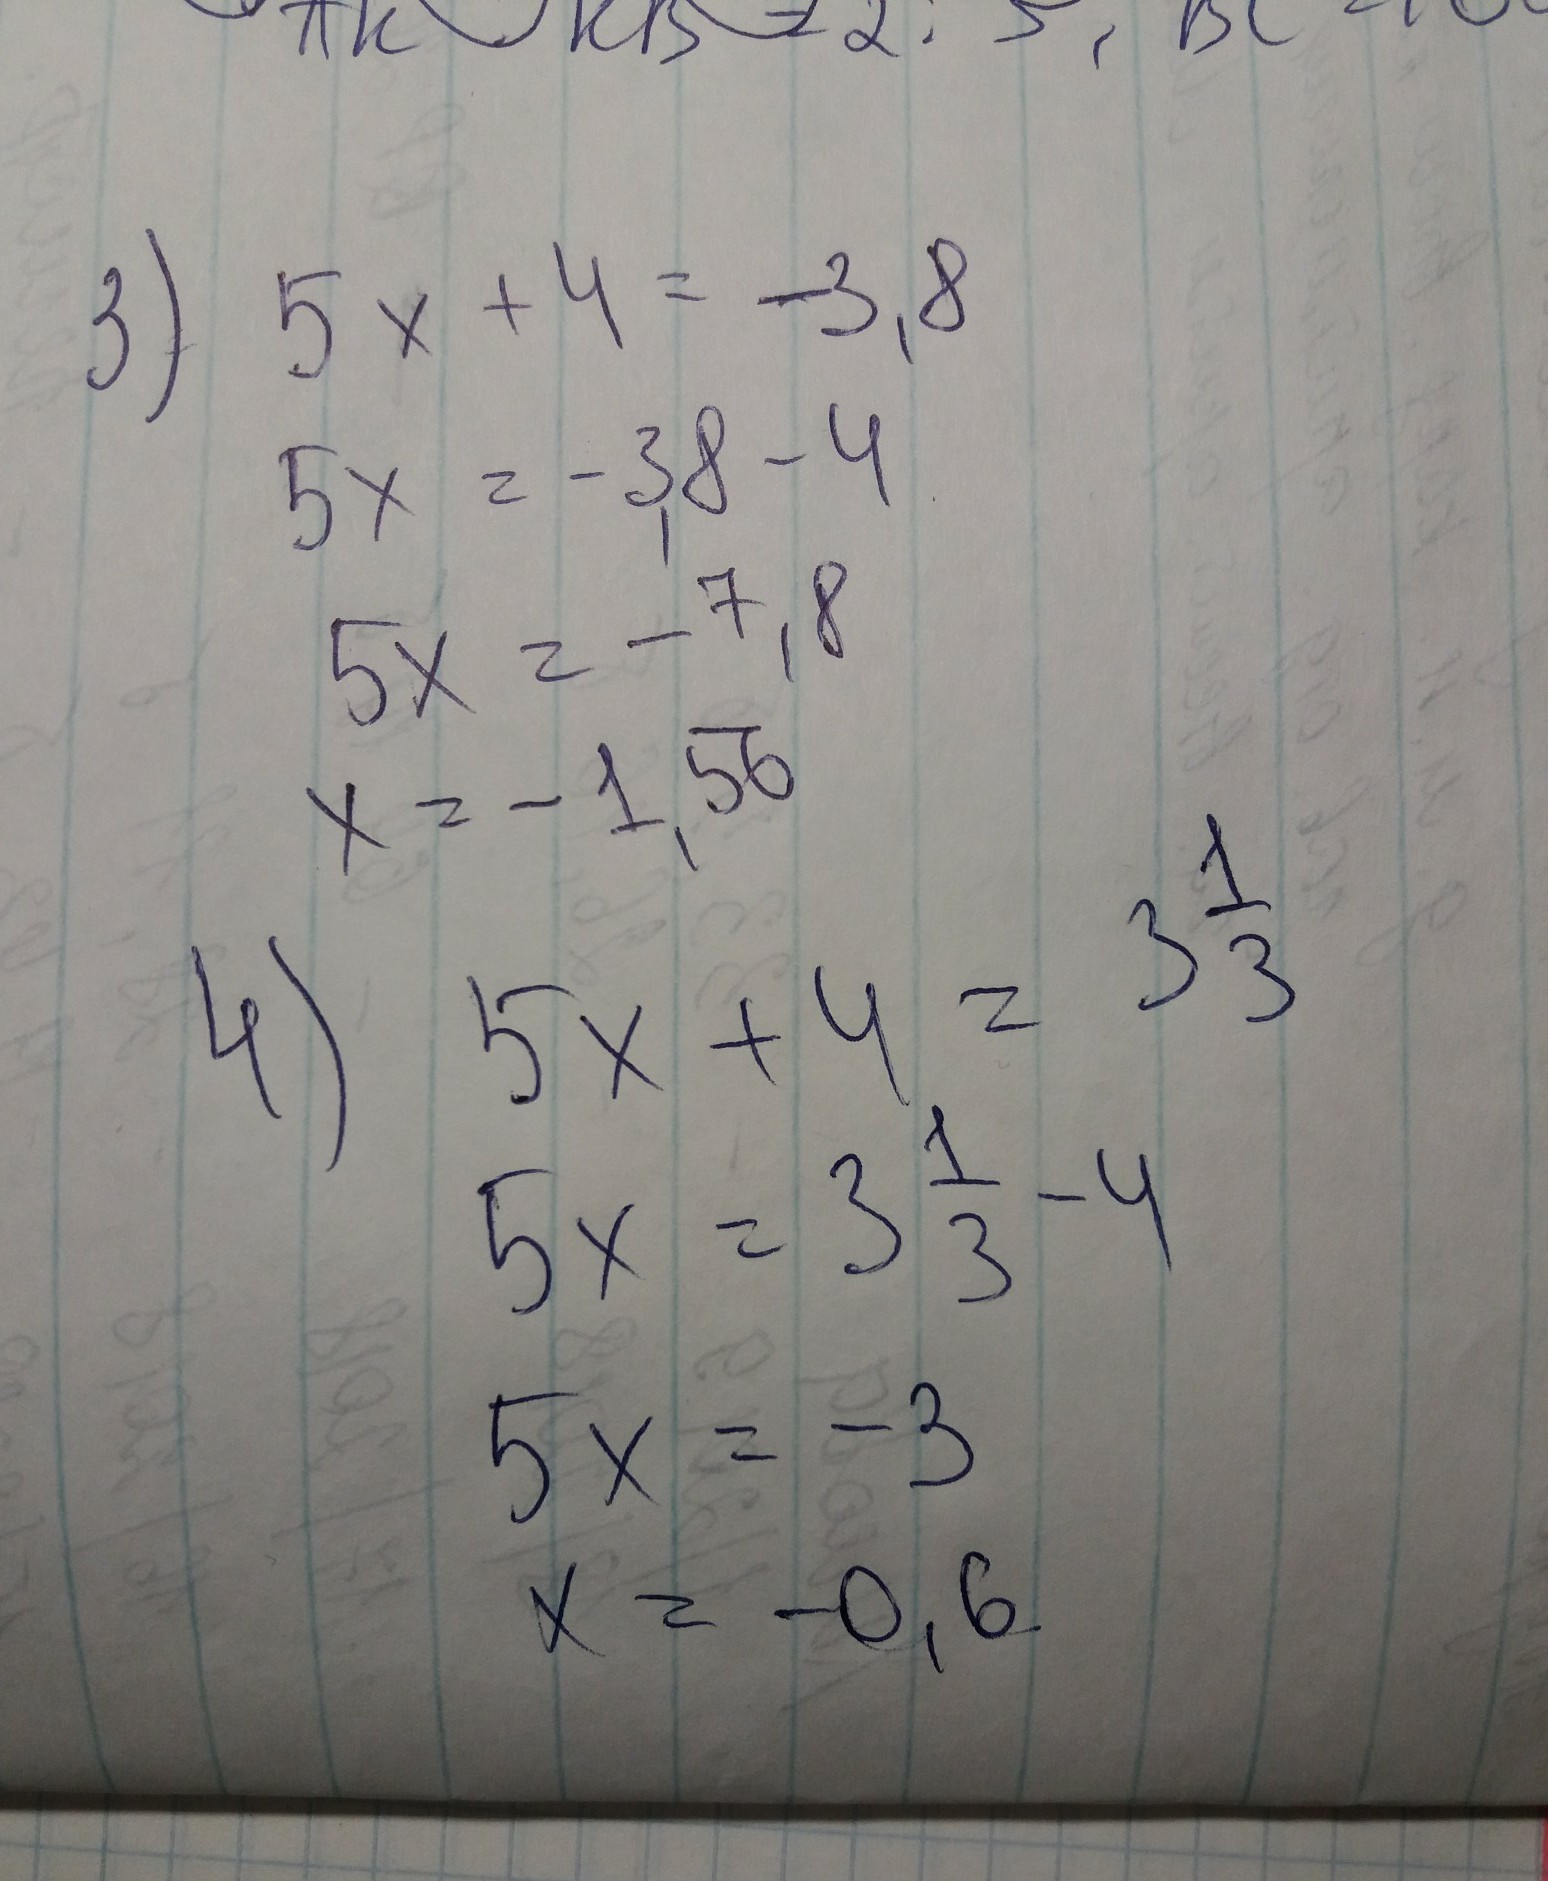 KB = 2 : 5, BC =
3) 5x + 4 = -3,8
5x = -3,8 - 4
5x = -7,8
x = -1,56
4) 5x + 4 = 3 1/3
5x = 3 1/3 - 4
5x = -3
x = -0,6